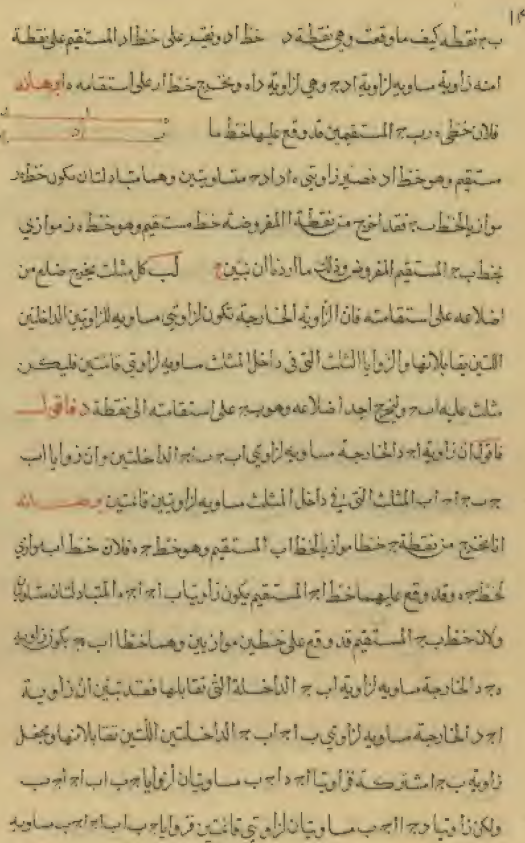 ١٤
ب ج نقطه كيف ما وقعت وهي نقطة د خط اد ونقيم على خط اد المستقيم على نقطة
ا منه زاوية مساويه لزاوية ادج وهي لزاوية داه ونخرج خط ار على استقامه ه ا برهانه
فلان خطى ه ر ب ج المستقيمين قد وقع عليهما خط ما
مستقيم وهو خط اد فصير زاويتى ه اد ادج متساويتين وهما متبادلتان يكون خط ه ر
موازيا لخط ب ج فقد اخرج من نقطة ا المفروضة خط مستقيم وهو خط ه ر موازي
لخط ب ج المستقيم المفروض وذلك ما اردنا ان نبين لب كل مثلث يخرج ضلع من
اضلاعه على استقامته فان الزاوية الخارجة تكون لزاويتى مساويه للزاويتين الداخلتين
اللتين يقابلانها والزوايا الثلث التى فى داخل المثلث مساويه لزاويتى قائمتين فليكن
مثلث عليه ابج ونخرج احد اضلاعه وهو بج على استقامته الى نقطة د فاقول
فاقول ان زاوية اجد الخارجة مساويه لزاويتى ابج بجا الداخلتين وان زوايا اب
ج بجا جاب الثلث التى فى داخل المثلث مساويه لزاويتين قائمتين برهانه
انا نخرج من نقطة ج خطا موازيا لخط اب المستقيم وهو خط ج ه فلان خط اب موازي
لخط ج ه وقد وقع عليهما خط اج المستقيم يكون زاويتا باج اجه المتبادلتان متساويتان
ولان خط بج المستقيم قد وقع على خطين موازيين وهما خطا اب جه يكون زاوية
هجد الخارجة مساويه لزاوية ابج الداخلة التى تقابلها فقد تبين ان زاوية
اجد الخارجة مساويه لزاويتى باج ابج الداخلتين اللتين تقابلانها ونجعل
زاوية بجا مشتركة فزاويتا اجد اجب مساويتان لزوايا اجب ابج باج
ولكن زاويتا دجا اجب مساويتان لزاويتى قائمتين فزوايا جب اباج اجب مساوية